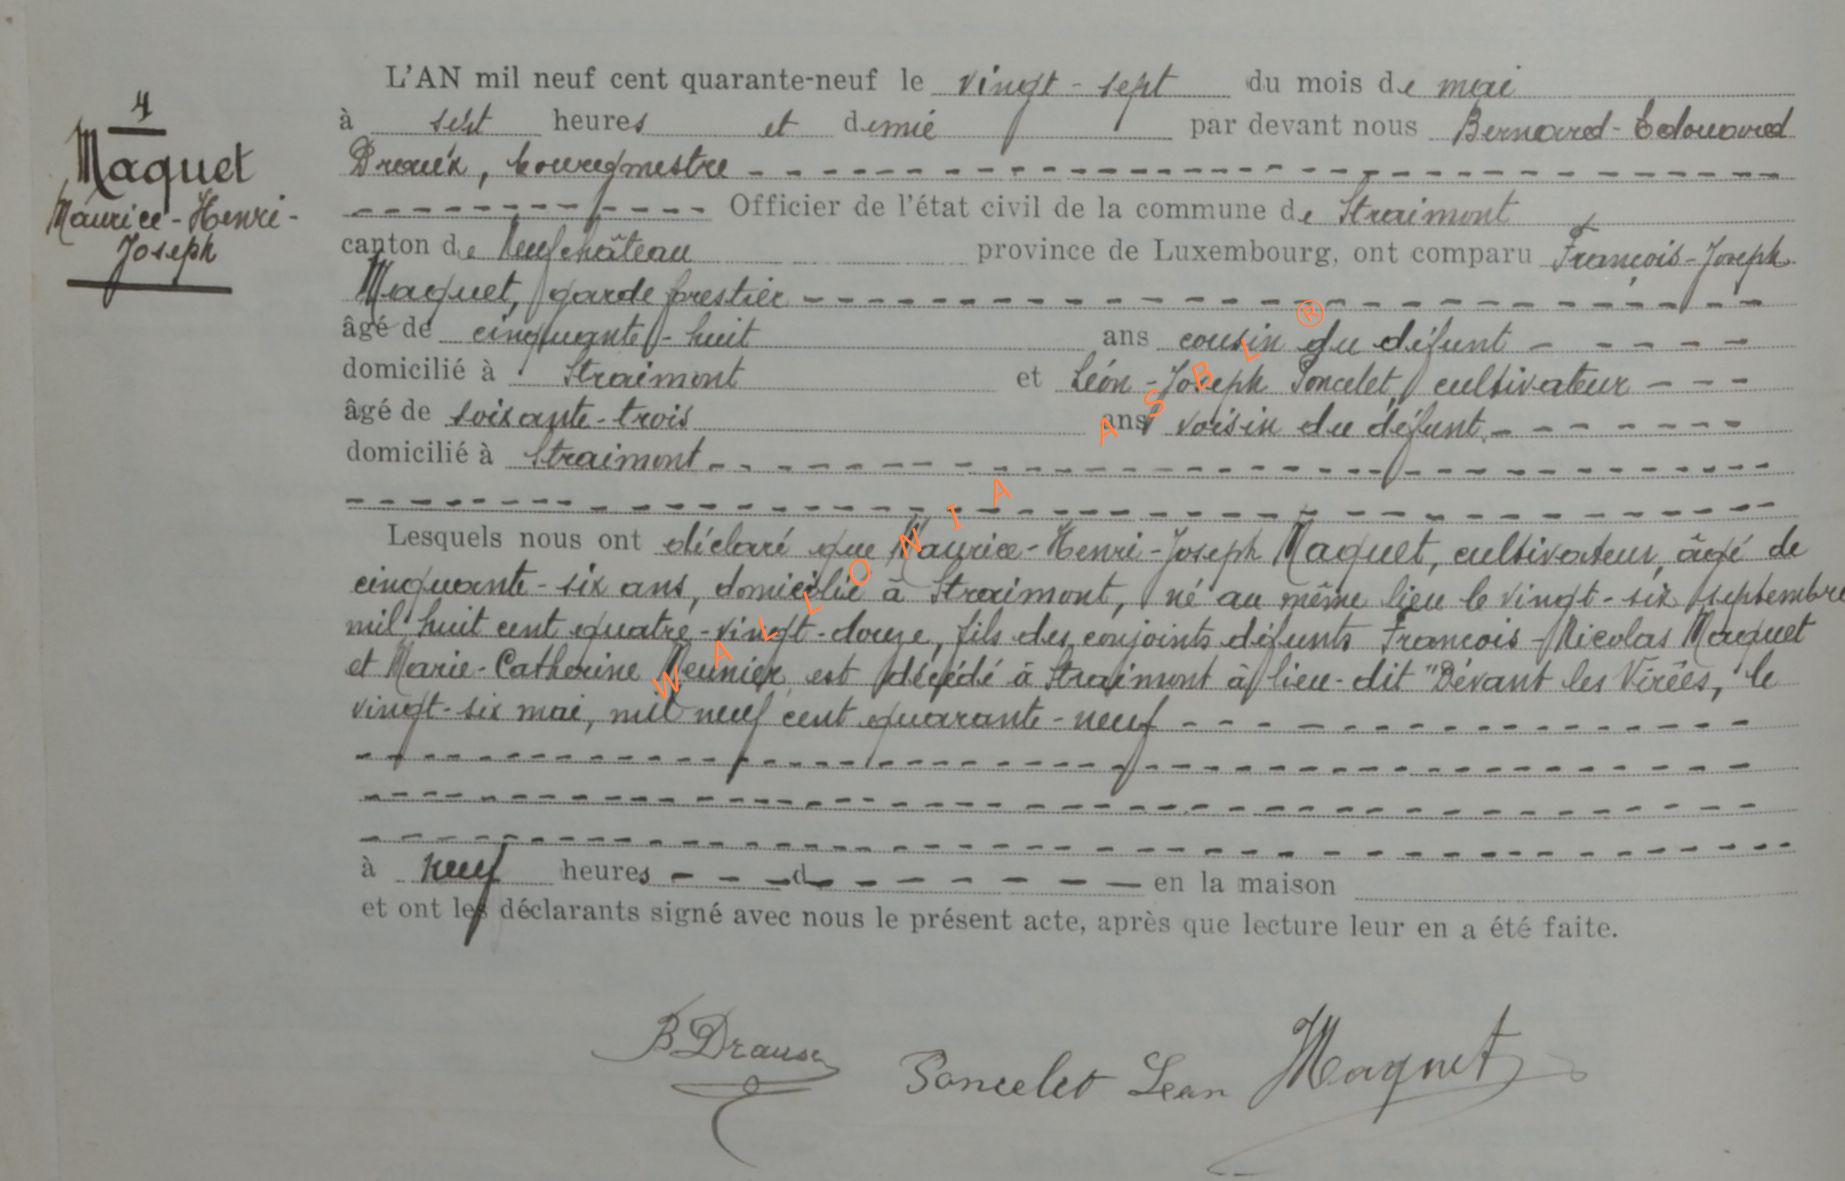 4
Maquet
Maurice-Henri-
Joseph
L'AN mil neuf cent quarante-neuf le vingt-sept du mois de mai
à sept heures et demie par devant nous Bernard-Edouard
bourgmestre
Officier de l'état civil de la commune de Straimont
canton de Neufchâteau province de Luxembourg, ont comparu François-Joseph
Maquet, garde forestier
âgé de cinquante-huit ans cousin du défunt
domicilié à Straimont et Léon-Joseph Poncelet, cultivateur
âgé de soixante-trois ans voisin du défunt,
domicilié à Straimont
Lesquels nous ont déclaré que Maurice-Henri-Joseph Maquet, cultivateur, âgé de
cinquante-six ans, domicilié à Straimont, né au même lieu le vingt-six septembre
mil huit cent quatre-vingt-douze, fils des conjoints défunts François-Nicolas Maquet
et Marie-Catherine Meunier, est décédé à Straimont à lieu-dit "Dévant les Virées," le
vingt-six mai, mil neuf cent quarante-neuf
à neuf heures d en la maison
et ont les déclarants signé avec nous le présent acte, après que lecture leur en a été faite.
Poncelet Léon Maquet
WALLONIA ASBL ®